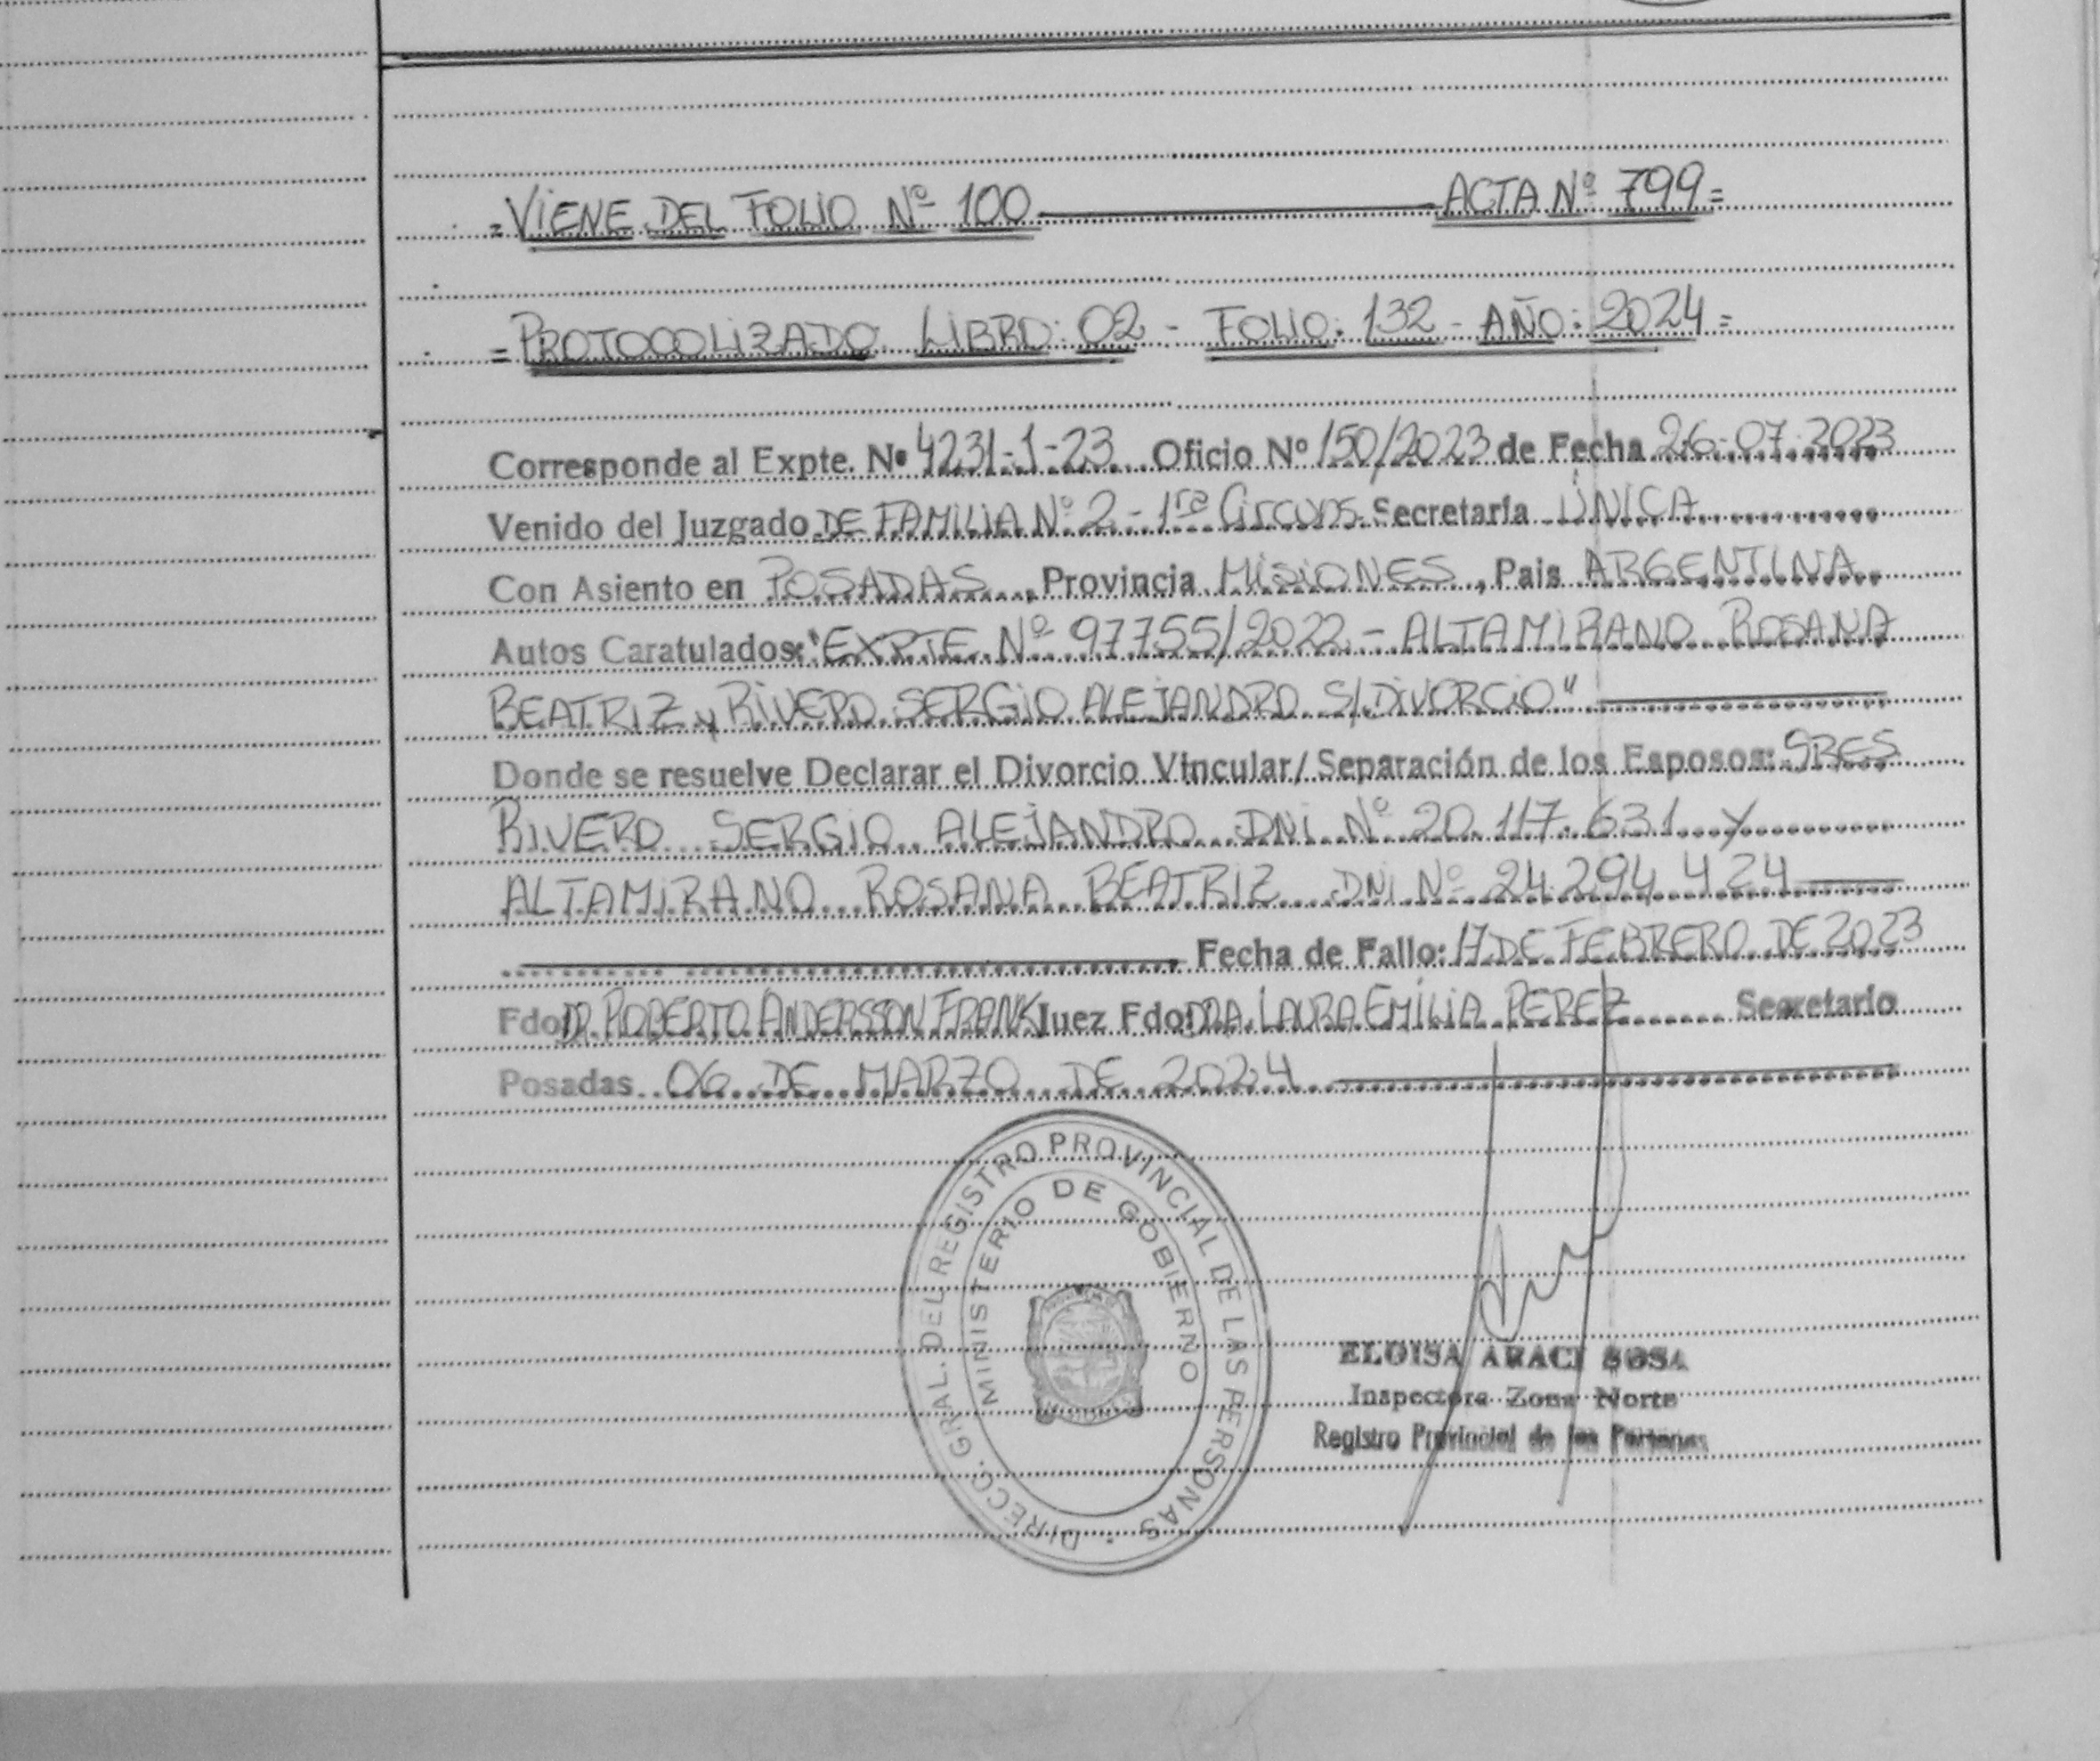 =VIENE DEL FOLIO Nº 100 ACTA Nº 799=
=PROTOCOLIZADO LIBRO: 02 - FOLIO: 132 - AÑO: 2024=
Corresponde al Expte. Nº 4231-1-23 Oficio Nº 150/2023 de Fecha 26-07-2023
Venido del Juzgado DE FAMILIA Nº 2 - 1ra Circuns. Secretaría ÚNICA
Con Asiento en POSADAS, Provincia MISIONES, Pais ARGENTINA
Autos Caratulados: "EXPTE Nº 97755/2022 - ALTAMIRANO ROSANA
BEATRIZ y RIVERO SERGIO ALEJANDRO S/DIVORCIO"
Donde se resuelve Declarar el Divorcio Vincular/ Separación de los Esposos: SRES
RIVERO SERGIO ALEJANDRO DNI Nº 20.117.631 y
ALTAMIRANO ROSANA BEATRIZ DNI Nº 24.294.424
Fecha de Fallo: 17 DE FEBRERO DE 2023
Fdo DR. ROBERTO ANDERSSON FRANK Juez Fdo: DRA. LAURA EMILIA PEREZ Secretario
Posadas 06 DE MARZO DE 2024
DIRECC. GRAL. DEL REGISTRO PROVINCIAL DE LAS PERSONAS
MINISTERIO DE GOBIERNO
MISIONES
ELOISA ARACI SOSA
Inspectora Zona Norte
Registro Provincial de las Personas